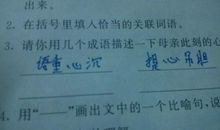 出来。
2. 在括号里填入恰当的关联词语。
3. 请你用几个成语描述一下母亲此刻的心
语重心沉 提心吊胆
4. 用“——”画出文中的一个比喻句，说